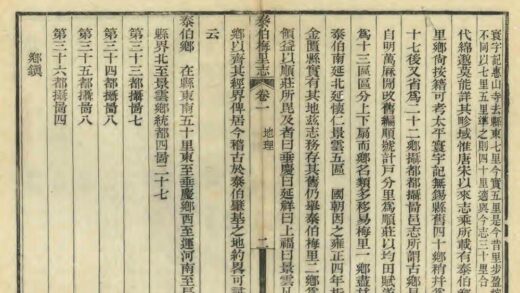 寰宇記惠山寺去縣東七里今實五里是今昔里步盈
不同以七里五里準之則四十里適與今志三十里合
代綿邈莫能詳其畛域惟唐宋以來志乘所載有泰伯
里鄉尚按籍可考太平寰宇記無錫縣舊四十鄉稍幷
十七後又省爲二十二鄉攝都都攝啚邑志所謂古鄉
自明萬厤開改舊編順號計戶分里爲順莊以均田賦
爲十三區區分上下扇而鄉名類多移易梅里一鄉盡
泰伯南延北延懷仁景雲五區 國朝因之雍正四年析
金匱縣實有其地茲志務存其舊仍舉泰伯梅里二鄉
領益以順莊所毘及者曰垂慶曰延祥曰上福曰景雲
鄉以齊其經界俾居今稽古於泰伯肇基之地約畧可
云
泰伯梅里志 卷一 地理 二
泰伯鄉 在縣東南五十里東至垂慶鄉西至運河南至長
縣界北至景雲鄉統都四啚二十七
第三十三都攝啚七
第三十四都攝啚八
第三十五都攝啚八
第三十六都攝啚四
鄉鎮